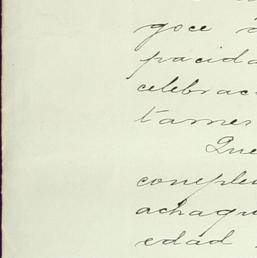 goce
pacida
celebrac
tames
Que
complem
achaqu
edad